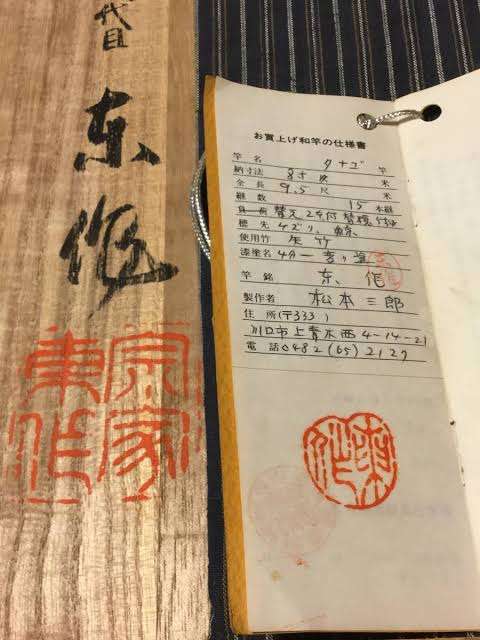 代目
东作
宗家
東作
お買上げ和竿の仕様書
竿名 タナゴ 竿
納寸法 8寸 尺 米
全長 9.5 尺 米
継数 15 本継
替え2本付替穂
穂先 ケズリ
使用竹 矢竹
漆塗名 4分一
竿銘 东作
製作者 松本三郎
住所(〒333)
川口市上青木西4-14-21
電話 0482(65)2127
東作